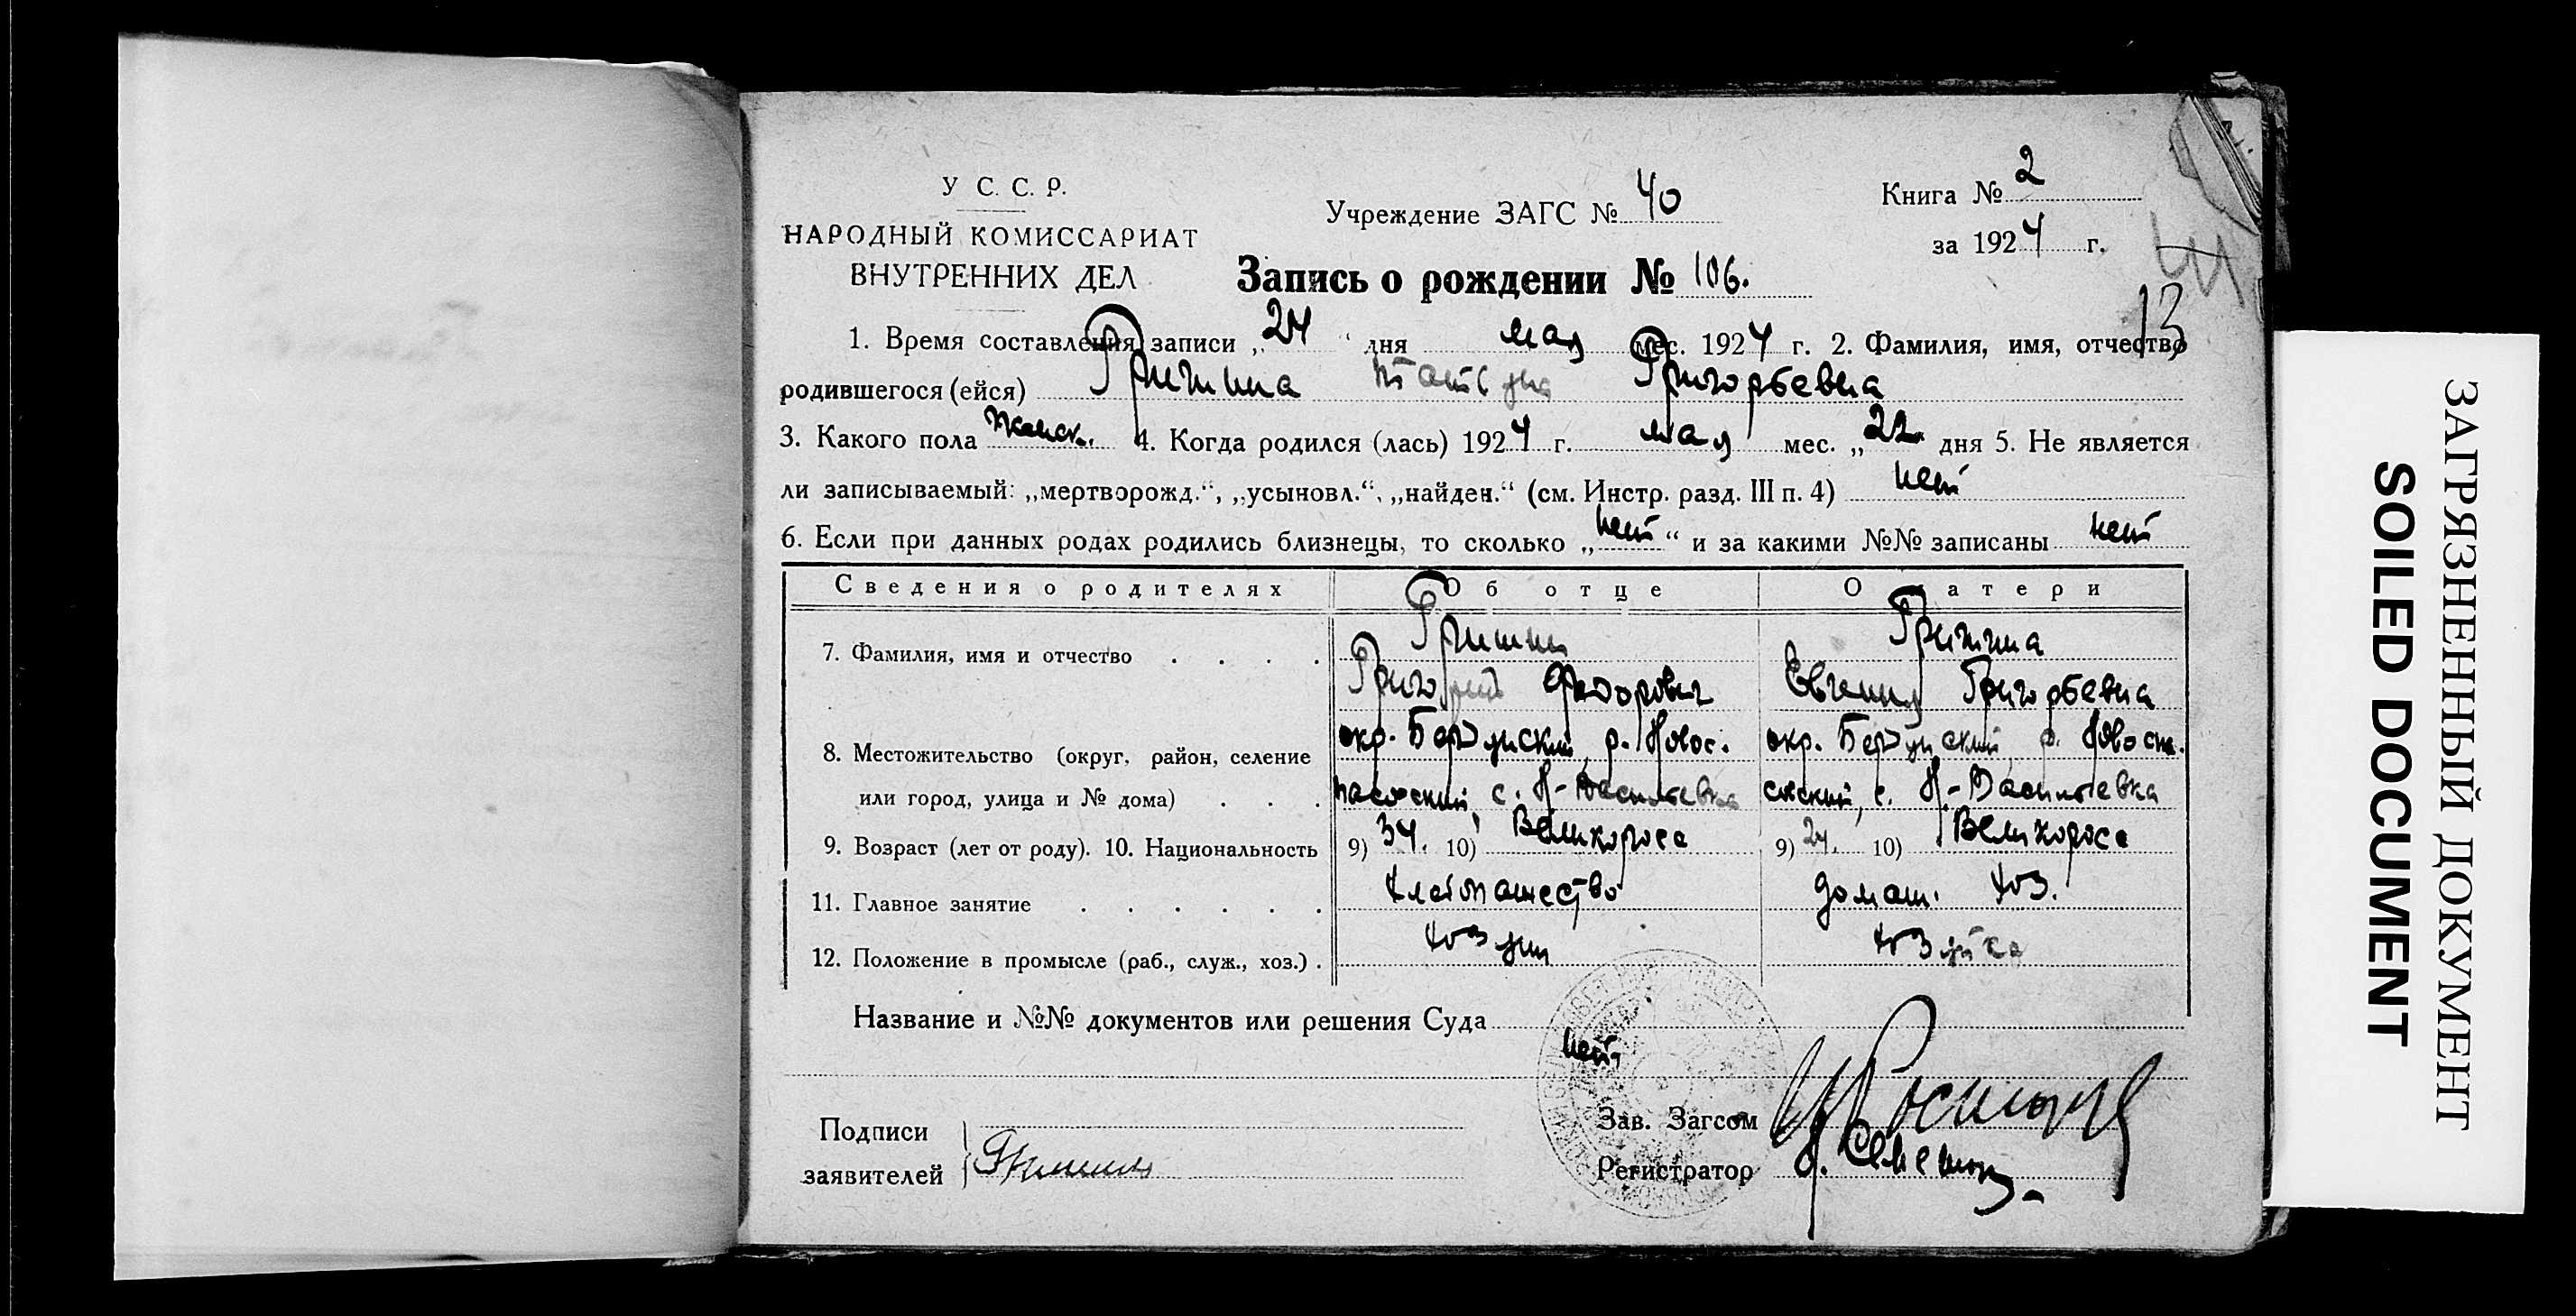 У С. С. Р.
НАРОДНЫЙ КОМИССАРИАТ
ВНУТРЕННИХ ДЕЛ
Учреждение ЗАГС № 40
Книга № 2
за 1924 г.
Запись о рождении № 106.
13
1. Время составления записи „24“ дня мая мес. 1924 г. 2. Фамилия, имя, отчество
родившегося (ейся) Гришина Григорьевна
3. Какого пола женск. 4. Когда родился (лась) 1924 г. мая мес. „22 дня 5. Не является
ли записываемый: „мертворожд.“, „усыновл.“, „найден.“ (см. Инстр. разд. III п. 4) нет
6. Если при данных родах родились близнецы, то сколько „нет“ и за какими №№ записаны нет
Сведения о родителях Об отце О матери
7. Фамилия, имя и отчество . . . . Гришин Гришина
Григорий Федорович Евгения Григорьевна
8. Местожительство (округ, район, селение окр. Бердянский, р. Новос- окр. Бердянский р. Новоспа-
или город, улица и № дома) . . . пасовский с. Н-Васильевка с. Н.-Васильевка
9. Возраст (лет от роду). 10. Национальность 9) 34. 10) Великоросс 9) 24. 10) Великоросс
11. Главное занятие . . . . . . Хлебопашество домаш. хоз.
12. Положение в промысле (раб., служ., хоз.) . хозяин хозяйка
Название и №№ документов или решения Суда
нет
Подписи
заявителей Гришин
Зав. Загсом
Регистратор
ЗАГРЯЗНЕННЫЙ ДОКУМЕНТ
SOILED DOCUMENT